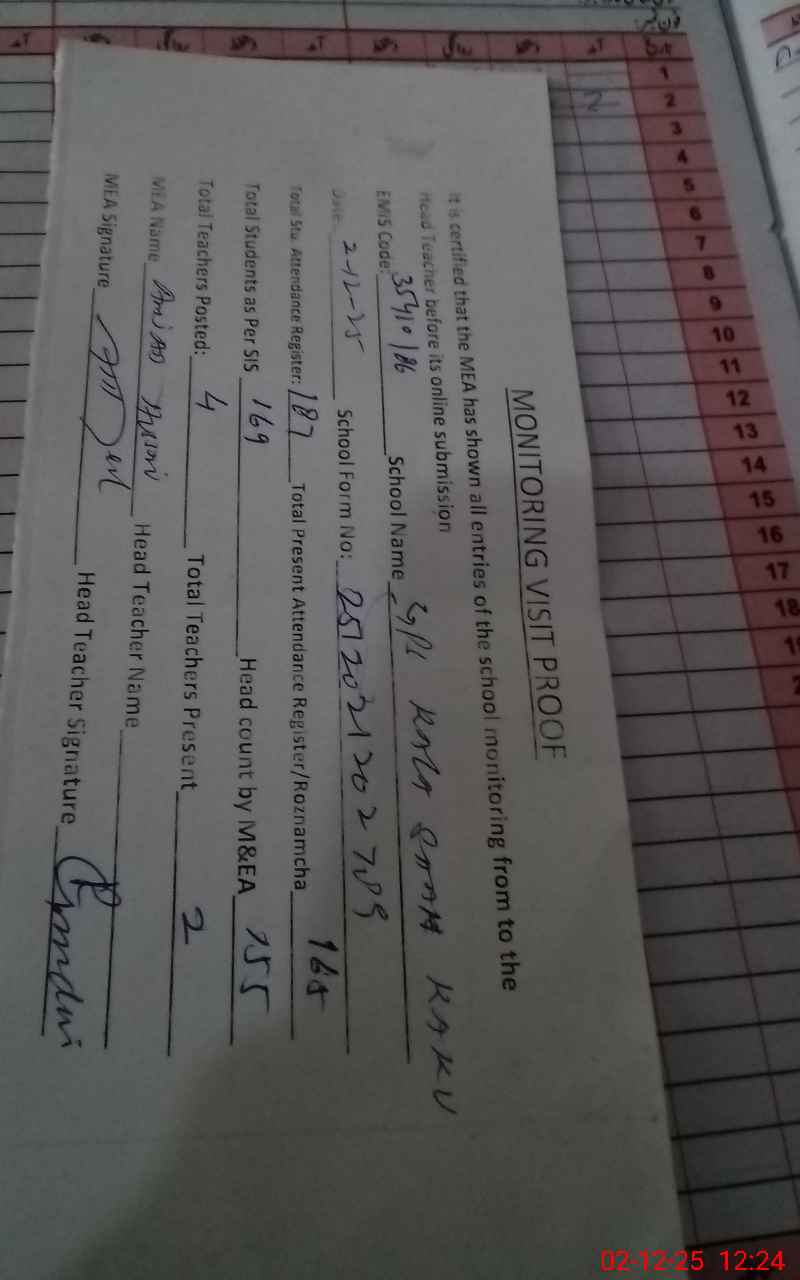 MONITORING VISIT PROOF
It is certified that the MEA has shown all entries of the school monitoring from to the
Head Teacher before its online submission
EMIS Code: 35410186 School Name KALA SHAH KAKU
Date: 2-12-25 School Form No: 2512021202789
Total Stu. Attendance Register: 187 Total Present Attendance Register/Roznamcha 168
Total Students as Per SIS 169 Head count by M&EA 155
Total Teachers Posted: 4 Total Teachers Present 2
MEA Name Head Teacher Name
MEA Signature Head Teacher Signature
1
2
3
4
5
6
7
8
9
10
11
12
13
14
15
16
17
18
02-12-25 12:24